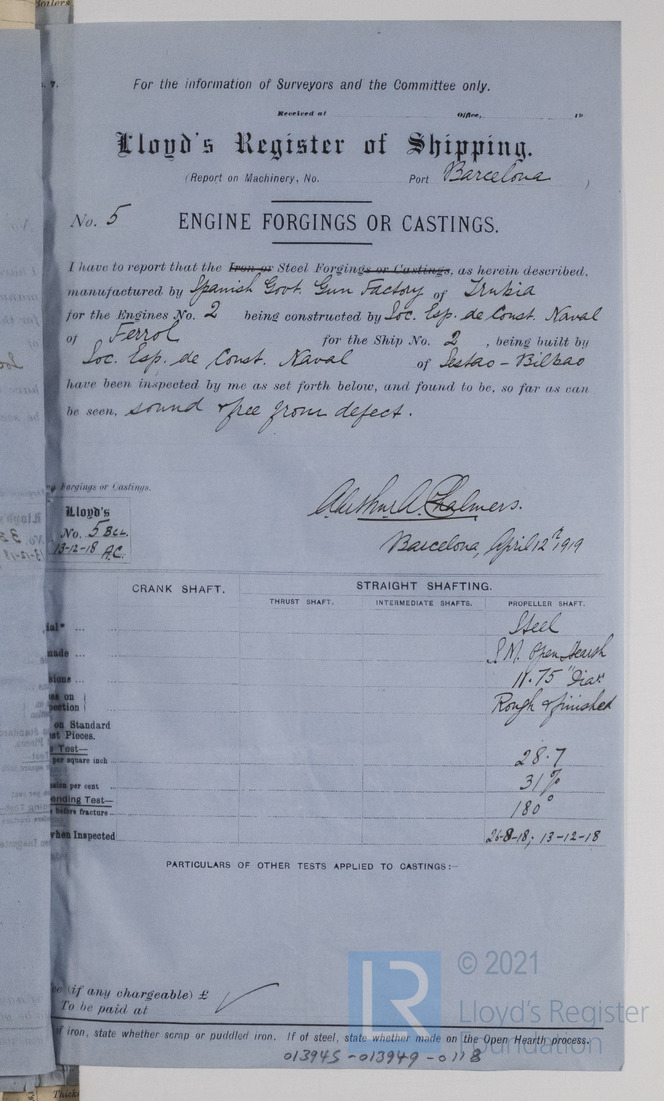 For the information of Surveyors and the Committee only.
Received at Office, 19
Lloyd's Register of Shipping.
(Report on Machinery, No. Port Barcelona )
No. 5 ENGINE FORGINGS OR CASTINGS.
I have to report that the Iron or Steel Forgings or Castings, as herein described,
manufactured by Spanish Govt. Gun Factory of Trubia
for the Engines No. 2 being constructed by Soc. Esp. de Const. Naval
of Ferrol for the Ship No. 2, being built by
Soc. Esp. de Const. Naval of Sestao - Bilbao
have been inspected by me as set forth below, and found to be, so far as can
be seen, sound & free from defect.
Forgings or Castings.
Lloyd's
No. 5 BCL.
13-12-18 A.C.
Arthur A. Chalmers.
Barcelona, April 12th 1919
CRANK SHAFT. STRAIGHT SHAFTING.
THRUST SHAFT. INTERMEDIATE SHAFTS. PROPELLER SHAFT.
ial* ... Steel
made ... S.M. Open Hearth
sions ... 11.75 "Dia"
ss on
pection Rough & finished
on Standard
st Pieces.
Test—
per square inch ... 28.7
sion per cent 31%
ending Test—
before fracture ... 180°
when Inspected 26-8-18; 13-12-18
PARTICULARS OF OTHER TESTS APPLIED TO CASTINGS:—
ee (if any chargeable) £
To be paid at
© 2021
LR
Lloyd's Register
Foundation
of iron, state whether scrap or puddled iron. If of steel, state whether made on the Open Hearth process.
013945-013949-0118